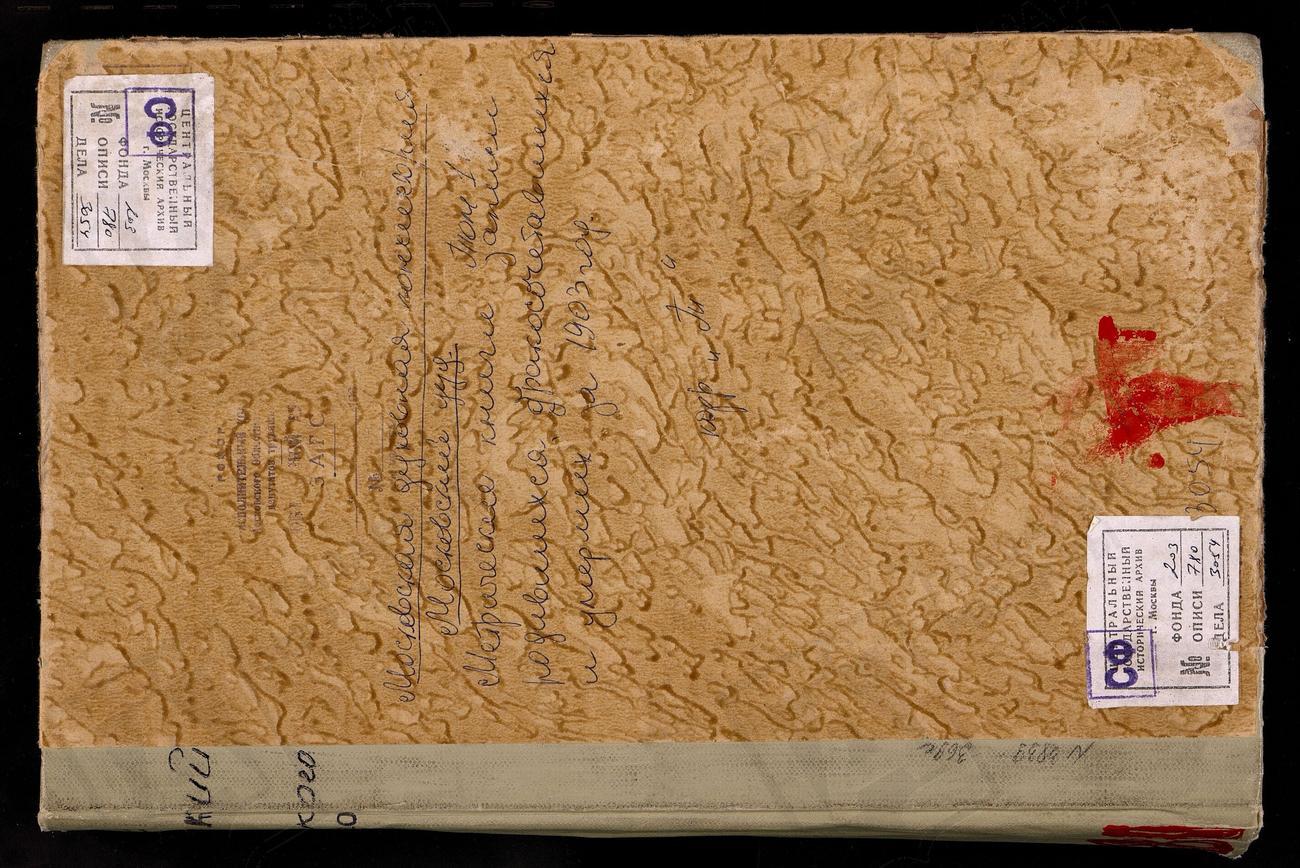 ЦЕНТРАЛЬНЫЙ
ГОСУДАРСТВЕННЫЙ
ИСТОРИЧЕСКИЙ АРХИВ
г. Москвы
СФ
ФОНДА 203
№ ОПИСИ 780
ДЕЛА 3054
РСФСР
ИСПОЛНИТЕЛЬНЫЙ
Московского Областн
депутатов трудящ
ЗАГС
№
Московская духовная консистория.
Московский уезд.
Том I
Метрические книги записи
родившихся, бракосочетавшихся
и умерших за 1903 год.
3054
ЦЕНТРАЛЬНЫЙ
ГОСУДАРСТВЕННЫЙ
ИСТОРИЧЕСКИЙ АРХИВ
г. Москвы
СФ
ФОНДА 203
№ ОПИСИ 780
ДЕЛА 3054
кий
кого
о